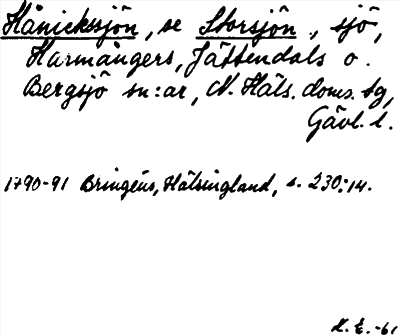 Hånickssjön, se Storsjön, sjö,
Harmångers, Jättendals o.
Bergsjö sn:ar, N. Häls. doms. tg,
Gävl. l.
1790-91 Bringéus, Hälsingland, s. 230:14.
K. E. -61